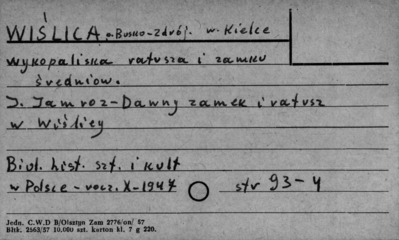 WIŚLICA p. Busko-Zdrój. w. Kielce
wykopaliska ratusza i zamku
średniow.
J. Jamroz-Dawny zamek i ratusz
w Wiślicy
Biul. hist. szt. i kult
w Polsce - rocz. X-1947 str 93-4
Jedn. C.W.D B/Olsztyn Zam 2776/on/ 57
Bltk. 2563/57 10.000 szt. karton kl. 7 g 220.